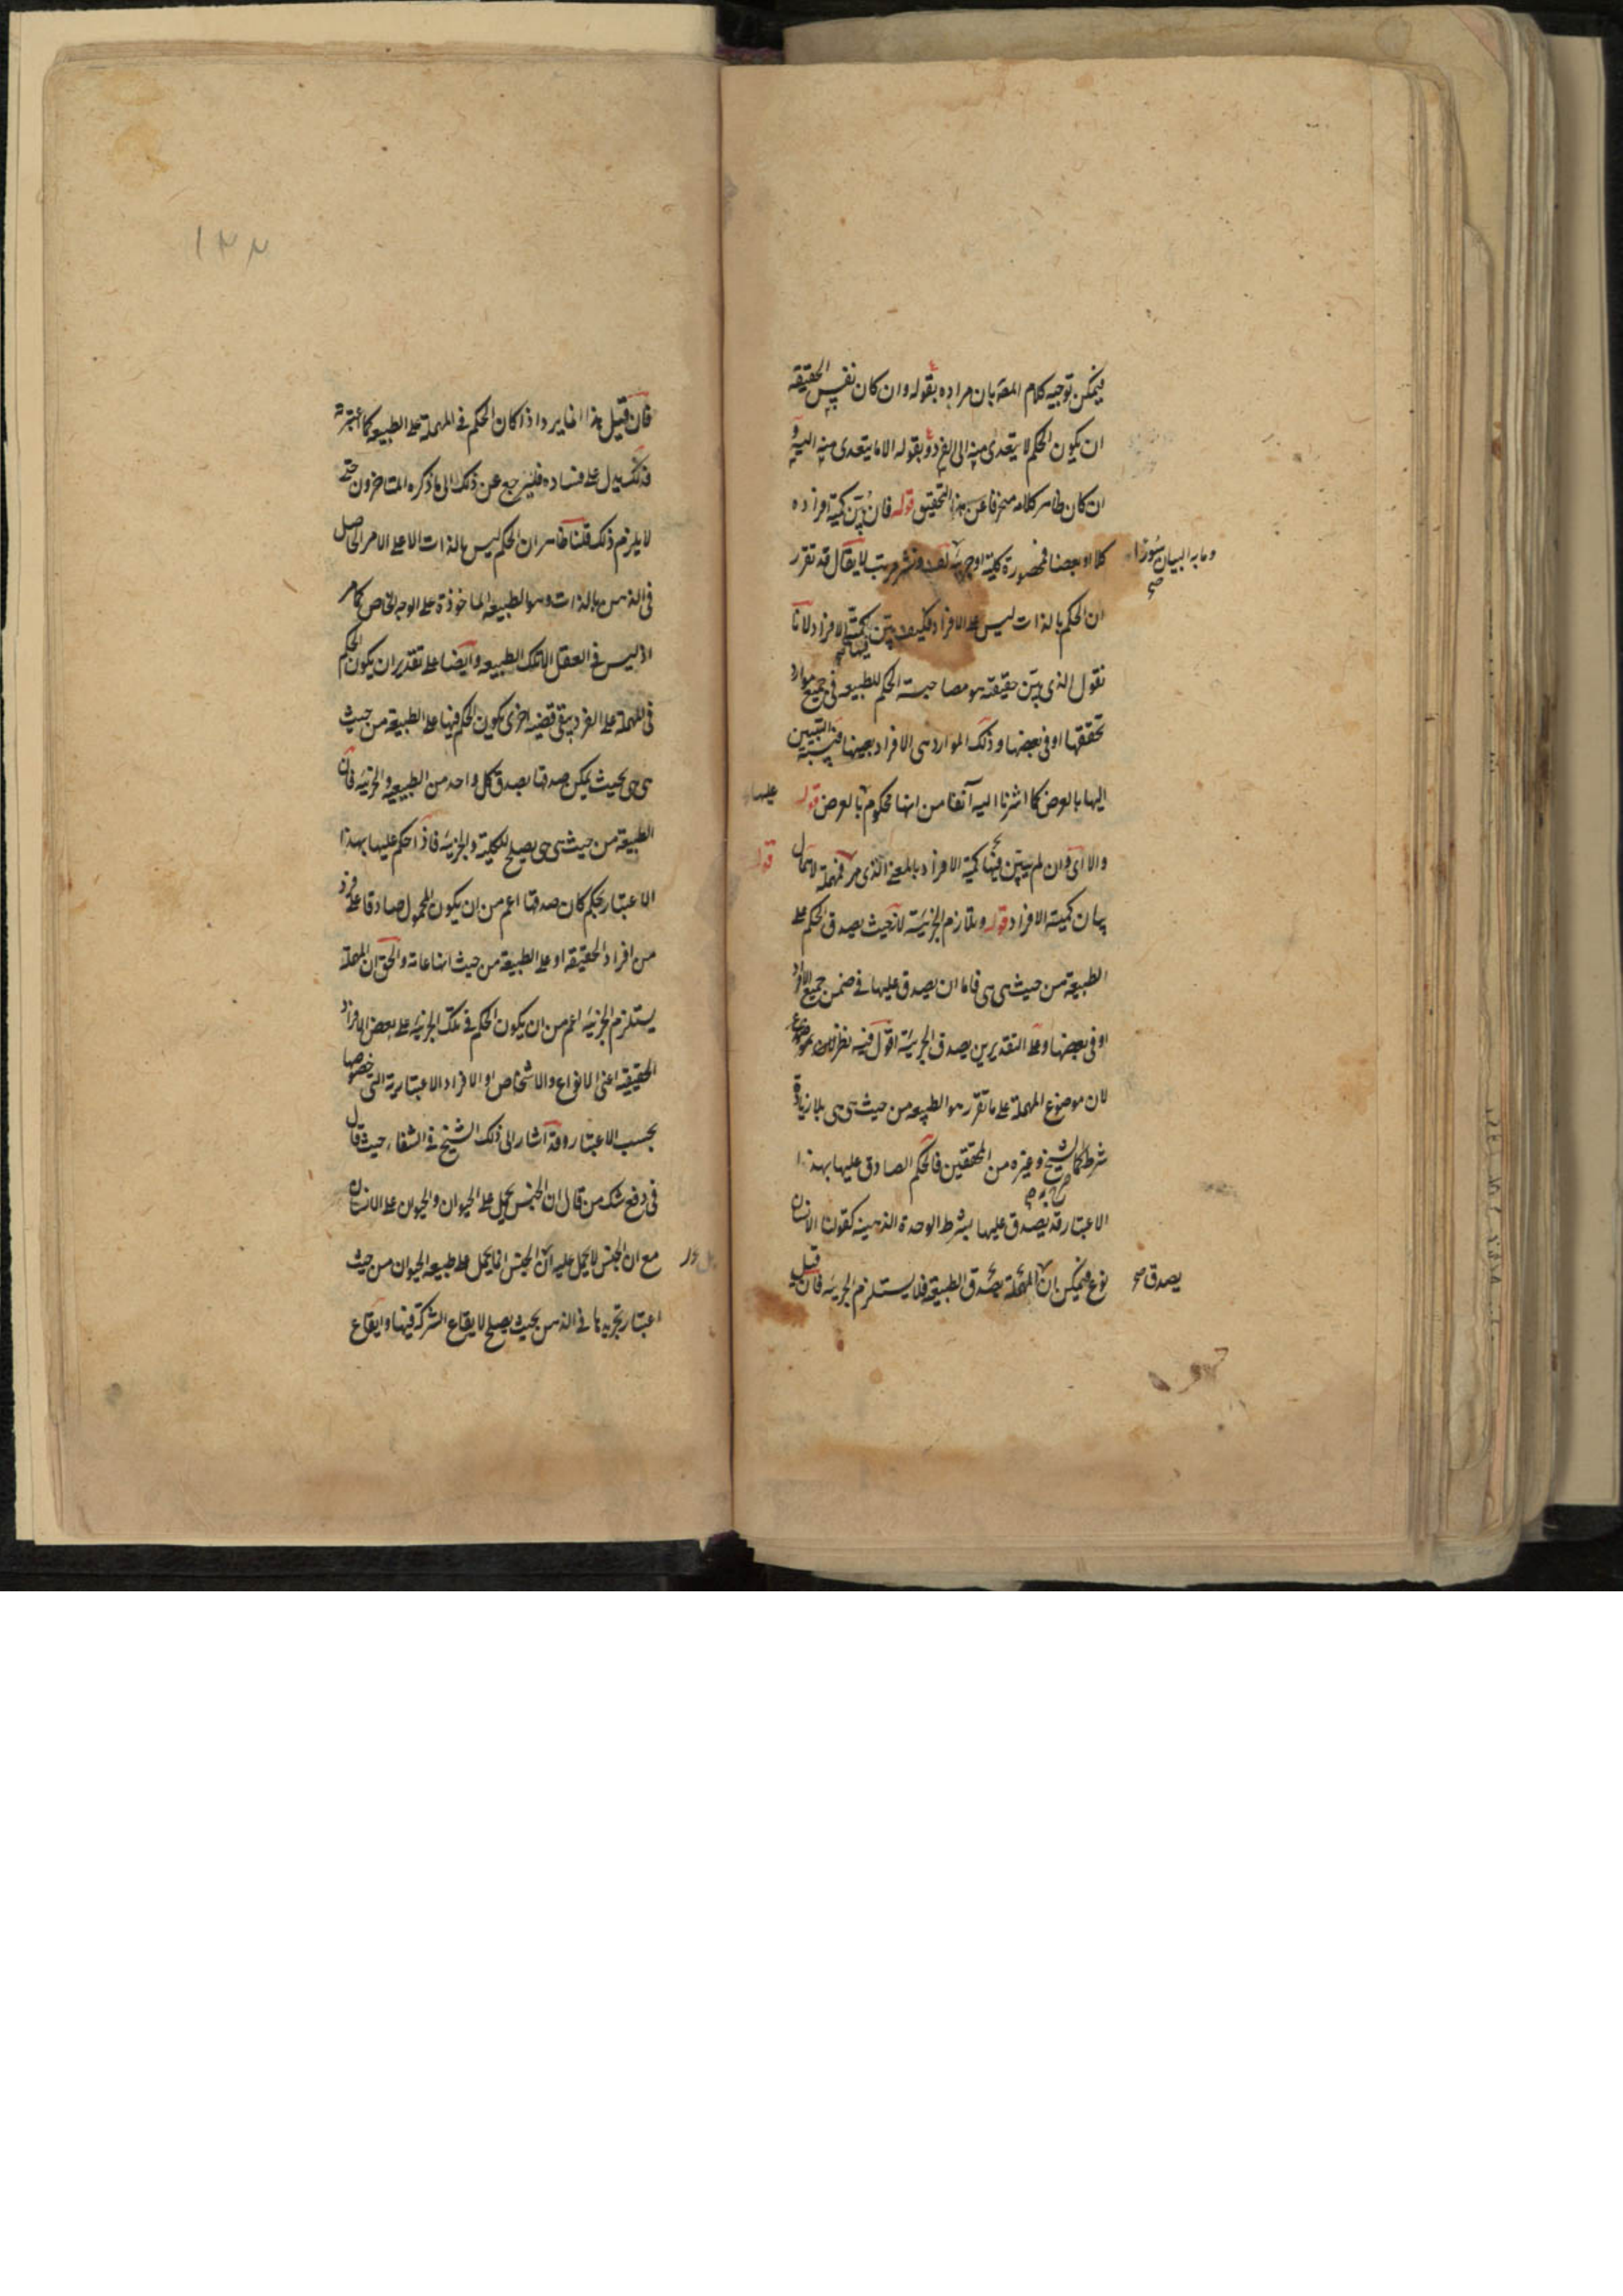 فيمكن توجيه كلام المصه بان مراده بقوله وان كان نفس الحقيقة
ان يكون الحكم لا يتعدى منه الى الفرد وبقوله الا ما يتعدى منه اليه و
ان كان ظاهر كلامه منحرفا عن هذا التحقيق قوله فان بُيّن كمية افراده
كلا او بعضا فمحصورة كلية او جزئية لف ونشر مرتب لا يقال قد تقرر
وما به البيان سُورًا صح
ان الحكم بالذات ليس على الافراد فكيف يبين كمية الافراد لانا
فيها صح
نقول الذي يبين حقيقة هو مصاحبة الحكم للطبيعة في جميع موارد
تحققها او في بعضها وذلك الموارد هي الافراد بعينها فنسبة التبيين
اليها بالعرض كما اشرنا اليه آنفا من انها محكوم بالعرض قوله
عليها
والا اى وان لم يبين فيها كمية الافراد بالمعنى الذي مر فمهملة لاهمال
قوله
بيان كمية الافراد قوله وتلازم الجزئية لانه حيث يصدق الحكم على
الطبيعة من حيث هي هي فاما ان يصدق عليها في ضمن جميع الافراد
او في بعضها وعلى التقديرين يصدق الجزئية اقول فيه نظر
لان موضوع المهملة على ما تقرر هو الطبيعة من حيث هي هي بلا زيادة
شرط كما الشيخ وغيره من المحققين فالحكم الصادق عليها بهذا
صرح به صح
الاعتبار قد يصدق عليها بشرط الوحدة الذهنية كقولنا الانسان
نوع فيمكن ان المهملة بصدق الطبيعة فلا يستلزم الجزئية فان قيل
يصدق صح
١٢٢
فان قيل هذا انما يرد اذا كان الحكم في المهملة على الطبيعة كما اعتبرته
فذلك يدل على فساده فليرجع عن ذلك الى ما ذكره المتاخرون حتى
لا يلزم ذلك قلنا ظاهر ان الحكم ليس بالذات الا على الامر الحاصل
في الذهن بالذات وهو الطبيعة الماخوذة على الوجه الخاص كما مر
اذ ليس في العقل الا تلك الطبيعة وايضا على تقدير ان يكون الحكم
في المهملة على الفرد يبقى قضية اخرى يكون الحكم فيها على الطبيعة من حيث
هي هي بحيث يمكن صدقها بصدق كل واحد من الطبيعية والجزئية فان
الطبيعة من حيث هي هي يصلح للكلية والجزئية فاذا حكم عليها بهذا
الاعتبار بحكم كان صدقها اعم من ان يكون المحمول صادقا على فرد
من افراد الحقيقة او على الطبيعة من حيث انها عامة والحق ان المهملة
يستلزم الجزئية اعم من ان يكون الحكم في تلك الجزئية على بعض الافراد
الحقيقة اعنى الانواع والاشخاص او الافراد الاعتبارية التي خصوصها
بحسب الاعتبار وقد اشار الى ذلك الشيخ في الشفاء حيث قال
في دفع شك من قال ان الجنس يحمل على الحيوان والحيوان على الانسان
مع ان الجنس لا يحمل عليه ان الجنس انما يحمل على طبيعة الحيوان من حيث
اعتبار تجريدها في الذهن بحيث يصلح لايقاع الشركة فيها وايقاع